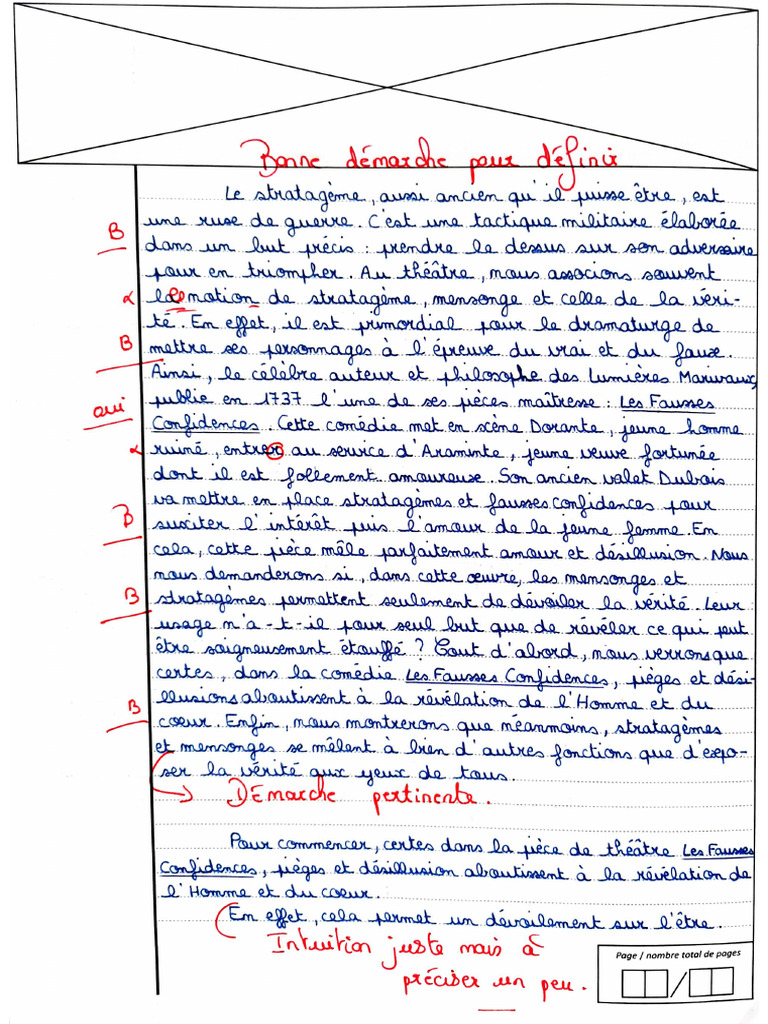 Bonne démarche pour définir
Le stratagème, aussi ancien qu'il puisse être, est
une ruse de guerre. C'est une tactique militaire élaborée
B
dans un but précis : prendre le dessus sur son adversaire
pour en triompher. Au théâtre, nous associons souvent
α la notion de stratagème, mensonge et celle de la véri-
té. En effet, il est primordial pour le dramaturge de
B
mettre ses personnages à l'épreuve du vrai et du faux.
Ainsi, le célèbre auteur et philosophe des Lumières Marivaux,
publie en 1737 l'une de ses pièces maîtresse : Les Fausses
oui
Confidences. Cette comédie met en scène Dorante, jeune homme
α ruiné, entrer au service d'Araminte, jeune veuve fortunée
dont il est follement amoureuse. Son ancien valet Dubois
va mettre en place stratagèmes et fausses confidences pour
B
susciter l'intérêt puis l'amour de la jeune femme. En
cela, cette pièce mêle parfaitement amour et désillusion. Nous
nous demanderons si, dans cette œuvre, les mensonges et
B
stratagèmes permettent seulement de dévoiler la vérité. Leur
usage n'a-t-il pour seul but que de révéler ce qui peut
être soigneusement étouffé ? Tout d'abord, nous verrons que
certes, dans la comédie Les Fausses Confidences, pièges et dési-
llusions aboutissent à la révélation de l'Homme et du
B
cœur. Enfin, nous montrerons que néanmoins, stratagèmes
et mensonges se mêlent à bien d'autres fonctions que d'expo-
ser la vérité aux yeux de tous.
Démarche pertinente.
Pour commencer, certes dans la pièce de théâtre Les Fausses
Confidences, pièges et désillusion aboutissent à la révélation de
l'Homme et du coeur.
En effet, cela permet un dévoilement sur l'être.
Intuition juste mais à
préciser un peu.
Page / nombre total de pages
/